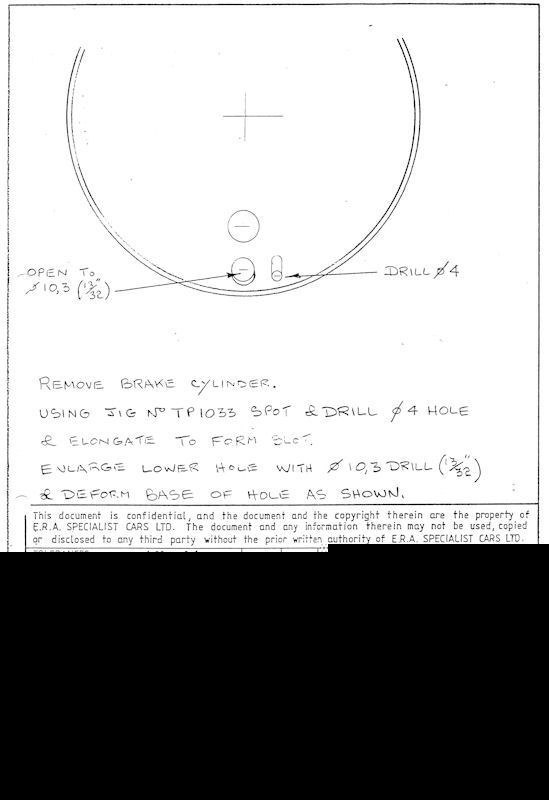 OPEN TO
ø 10,3 (13/32")
DRILL ø 4
REMOVE BRAKE CYLINDER.
USING JIG Nº TP1033 SPOT & DRILL ø 4 HOLE
& ELONGATE TO FORM SLOT.
ENLARGE LOWER HOLE WITH ø 10,3 DRILL (13/32")
& DEFORM BASE OF HOLE AS SHOWN.
This document is confidential, and the document and the copyright therein are the property of
E.R.A. SPECIALIST CARS LTD. The document and any information therein may not be used, copied
or disclosed to any third party without the prior written authority of E.R.A. SPECIALIST CARS LTD.